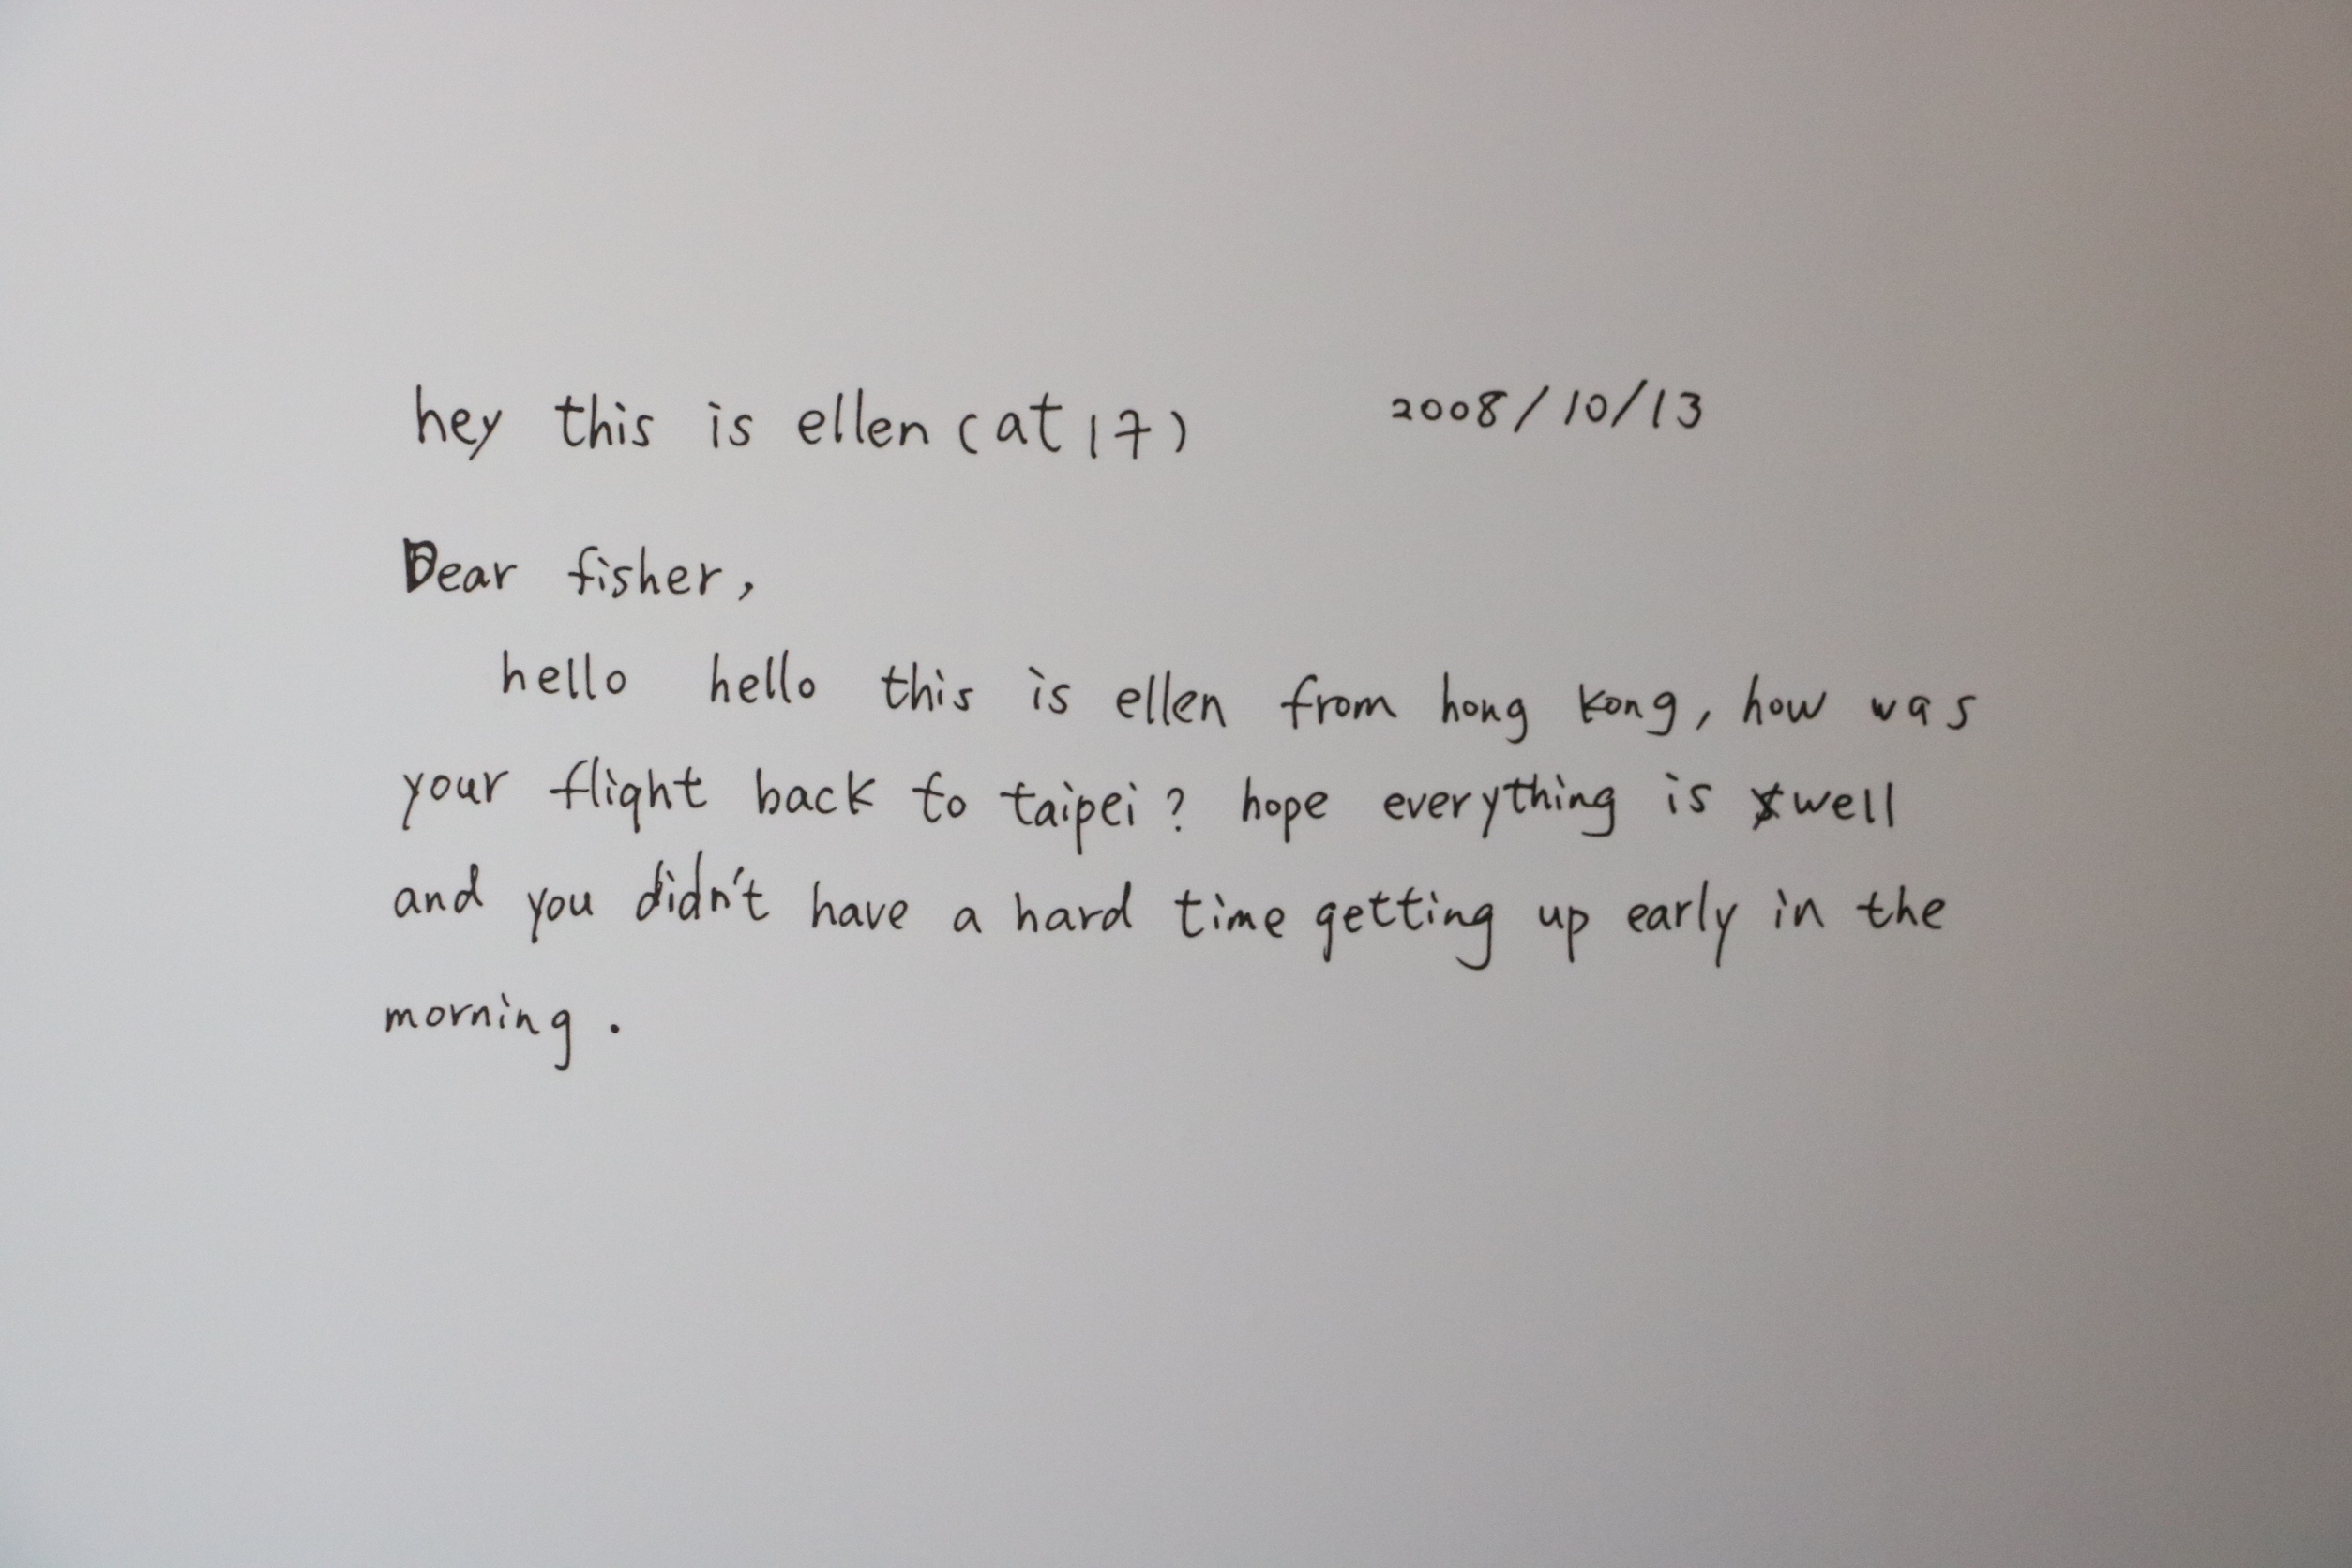 hey this is ellen (at 17) 2008/10/13
Dear fisher,
hello hello this is ellen from hong kong, how was
your flight back to taipei? hope everything is well
and you didn't have a hard time getting up early in the
morning.